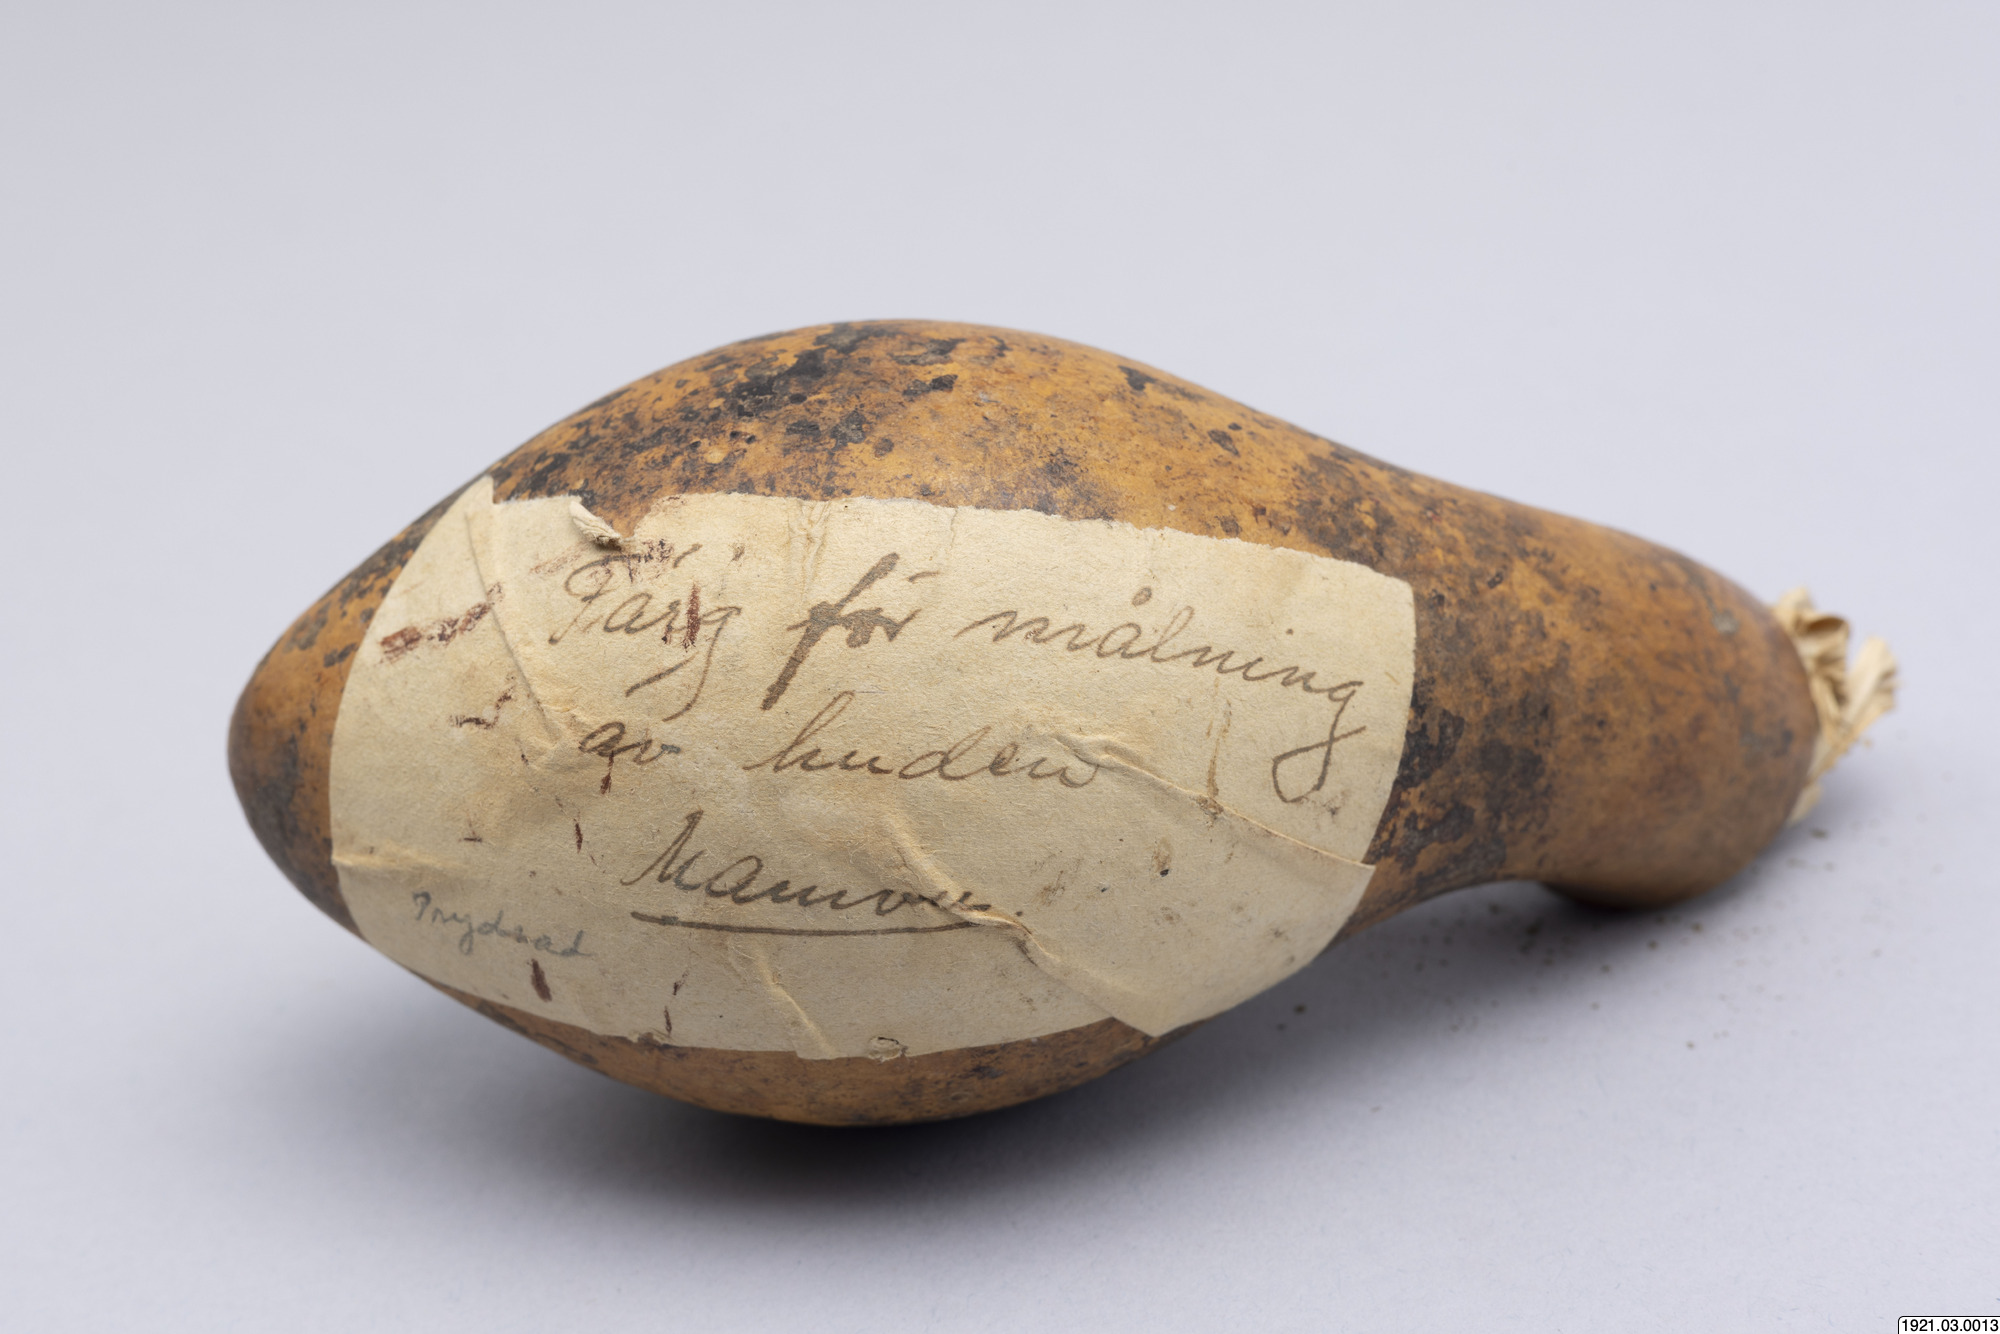 Färg för målning
av huden
Mamvu.
Prydnad
1921.03.0013